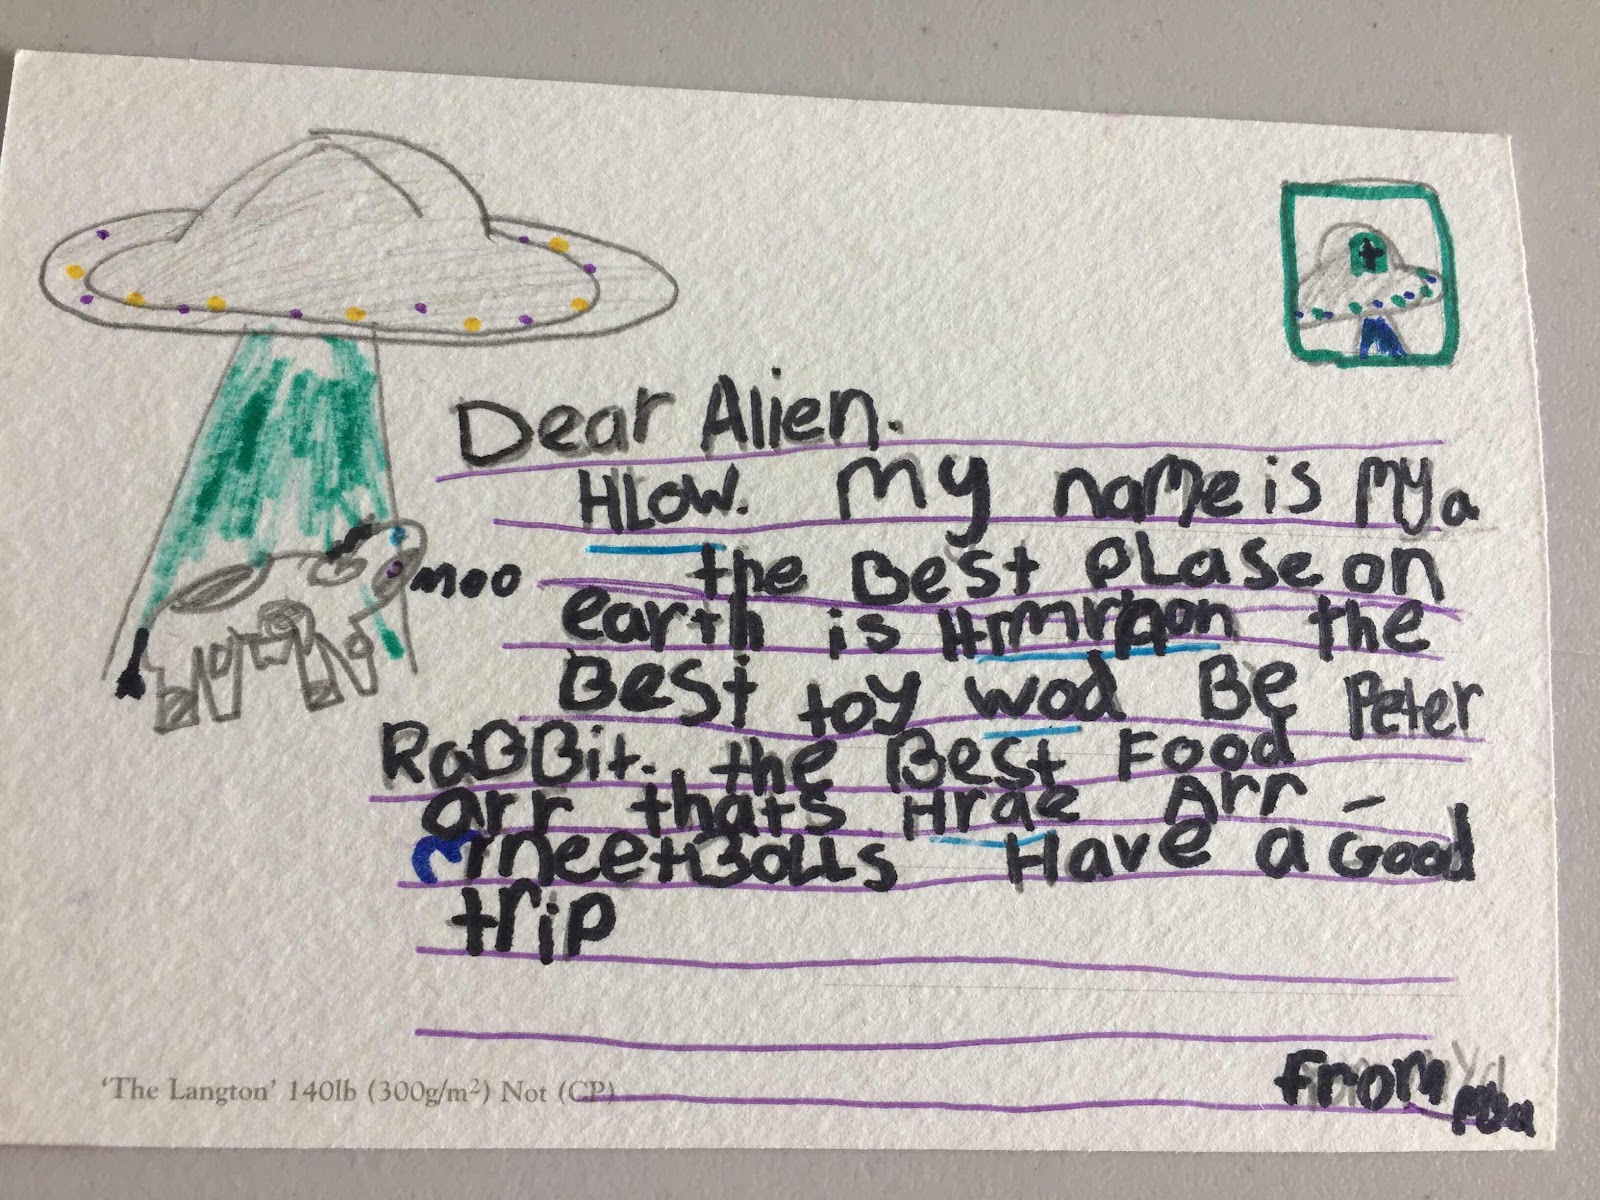 Dear Alien.
HLOW. My name is Mya
moo
the Best PLase on
earth is the
Best toy wod Be Peter
RaBBit. the Best Food
arr thats Hrae Arr -
meetBolls Have a Good
trip
from Mya
'The Langton' 140lb (300g/m²) Not (CP)